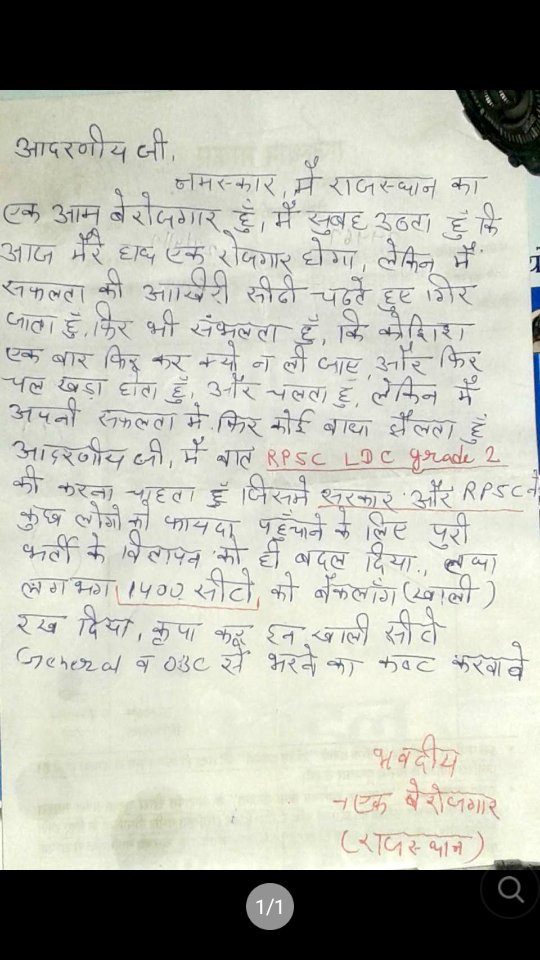 आदरणीय जी,
नमस्कार, मैं राजस्थान का
एक आम बेरोजगार हुँ, मैं सुबह उठता हुँ कि
आज मेरे हाथ एक रोजगार होगा, लेकिन मैं
सफलता की आखिरी सीढी चढते हुए गिर
जाता हुँ, फिर भी संभलता हुँ, कि कोशिश
एक बार फिर कर क्यो न ली जाए, और फिर
चल खडा होता हुँ, और चलता हुँ, लेकिन मैं
अपनी सफलता मे फिर कोई बाधा झेलता हुँ
आदरणीय जी, मैं बात RPSC LDC grade 2
की करना चाहता हुँ जिसमे सरकार और RPSC ने
कुछ लोगो को फायदा पहुँचाने के लिए पुरी
भर्ती के विज्ञापन को ही बदल दिया, तथा
लगभग 1400 सीटो को बैकलॉग (खाली)
रख दिया, कृपा कर इन खाली सीटो
General व OBC से भरने का कष्ट करवावे
भवदीय
एक बेरोजगार
(राजस्थान)
1/1